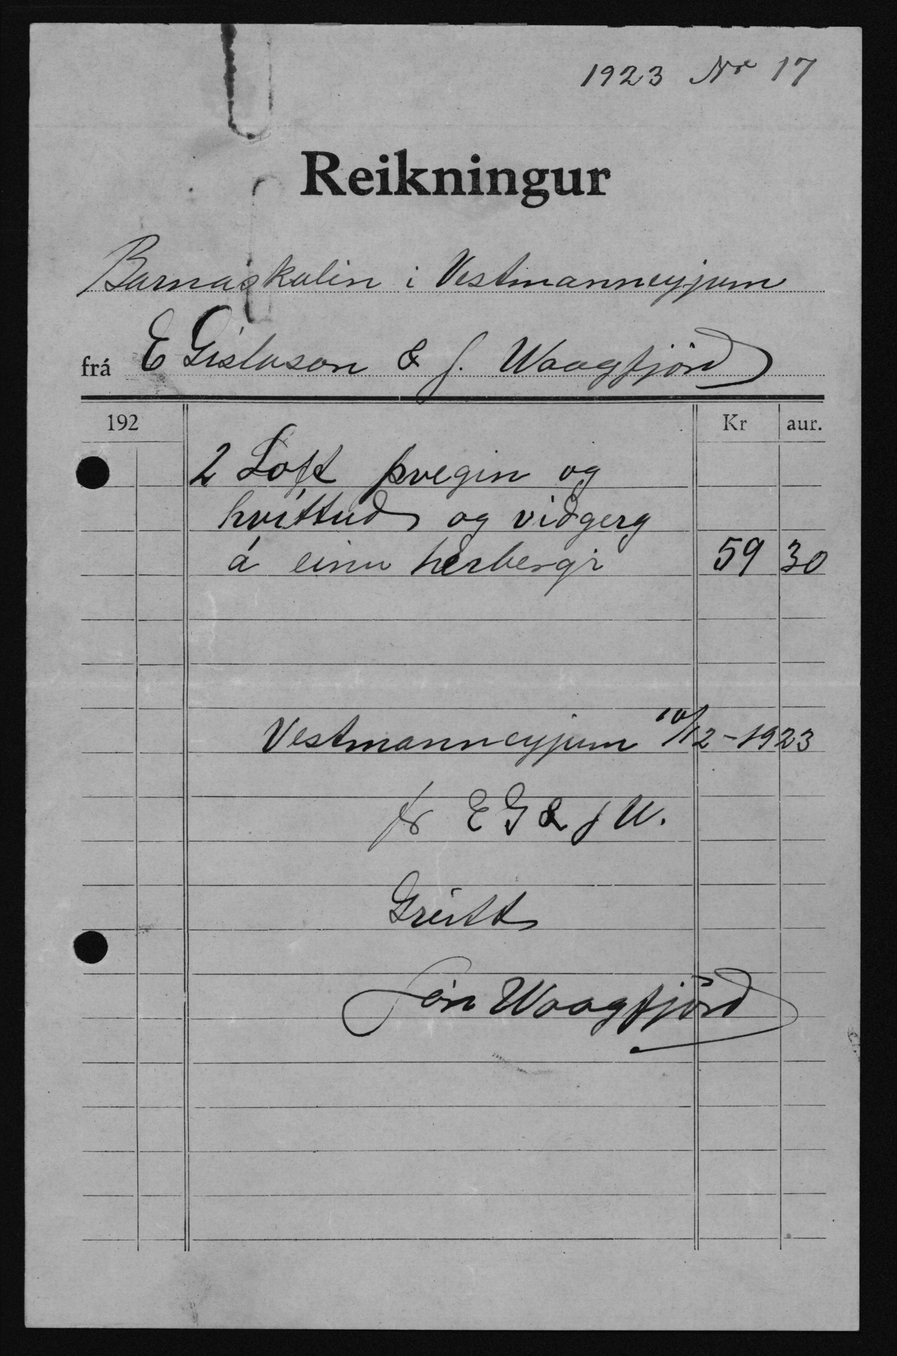 1923 No 17
Reikningur
Barnaskólin i Vestmanneyjum
frá E Gíslason & J. Waagfjörð
192 Kr aur.
2 Loft þvegin og
hvíttuð og viðgerg
á einu herbergi 59 30
Vestmanneyjum 10/12-1923
fr E G & J W.
Greitt
Jón Waagfjörð